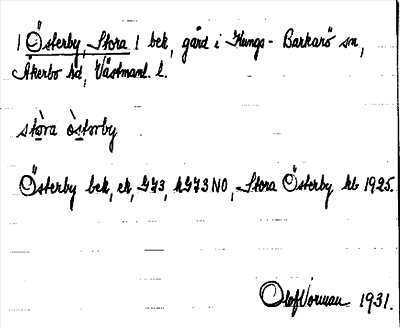 1 Österby, Stora 1 bek, gård i Kungs-Barkarö sn,
Åkerbo hd, Västmanl. l.
stòra òstərby
Österby bek, ek, G73, hG73 NO, Stora Österby kb 1925.
Olof Vorman 1931.